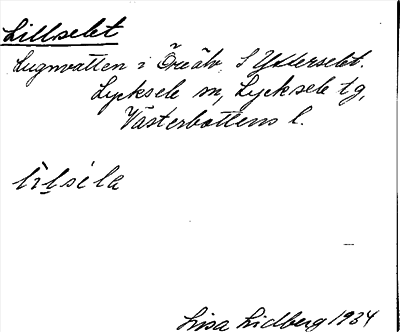 Lillselet
Lugnvatten i Öreälv, S Ytterselet.
Lycksele sn, Lycksele tg,
Västerbottens l.
Lisa Lidberg 1934